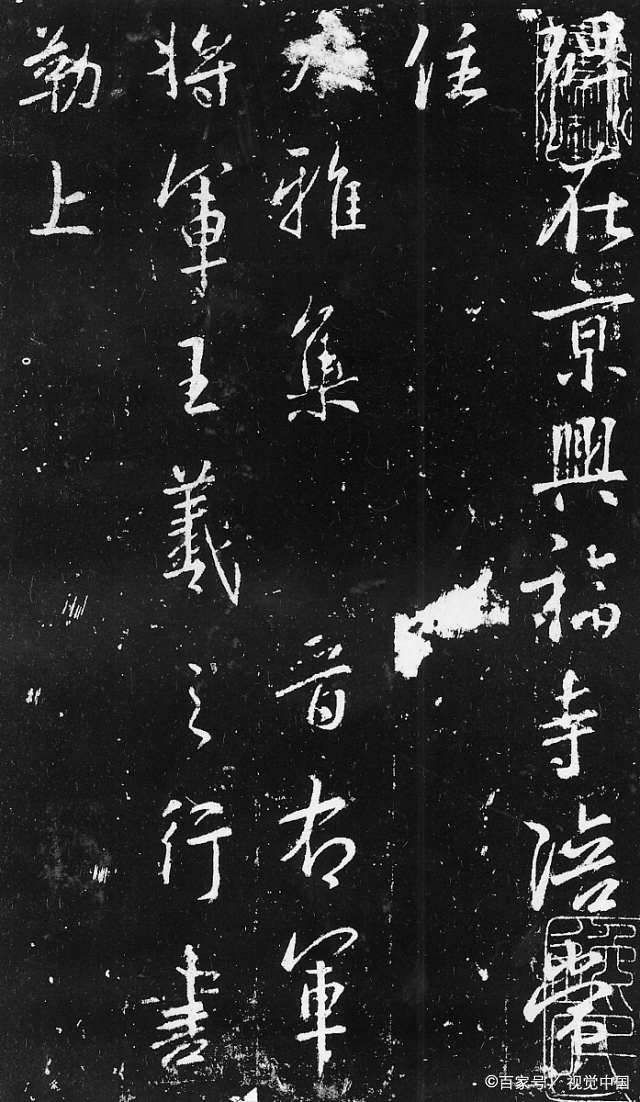 碑在京興福寺陪常
住
大雅集晋右軍
將軍王羲之行書
勒上
©百家号／视觉中国